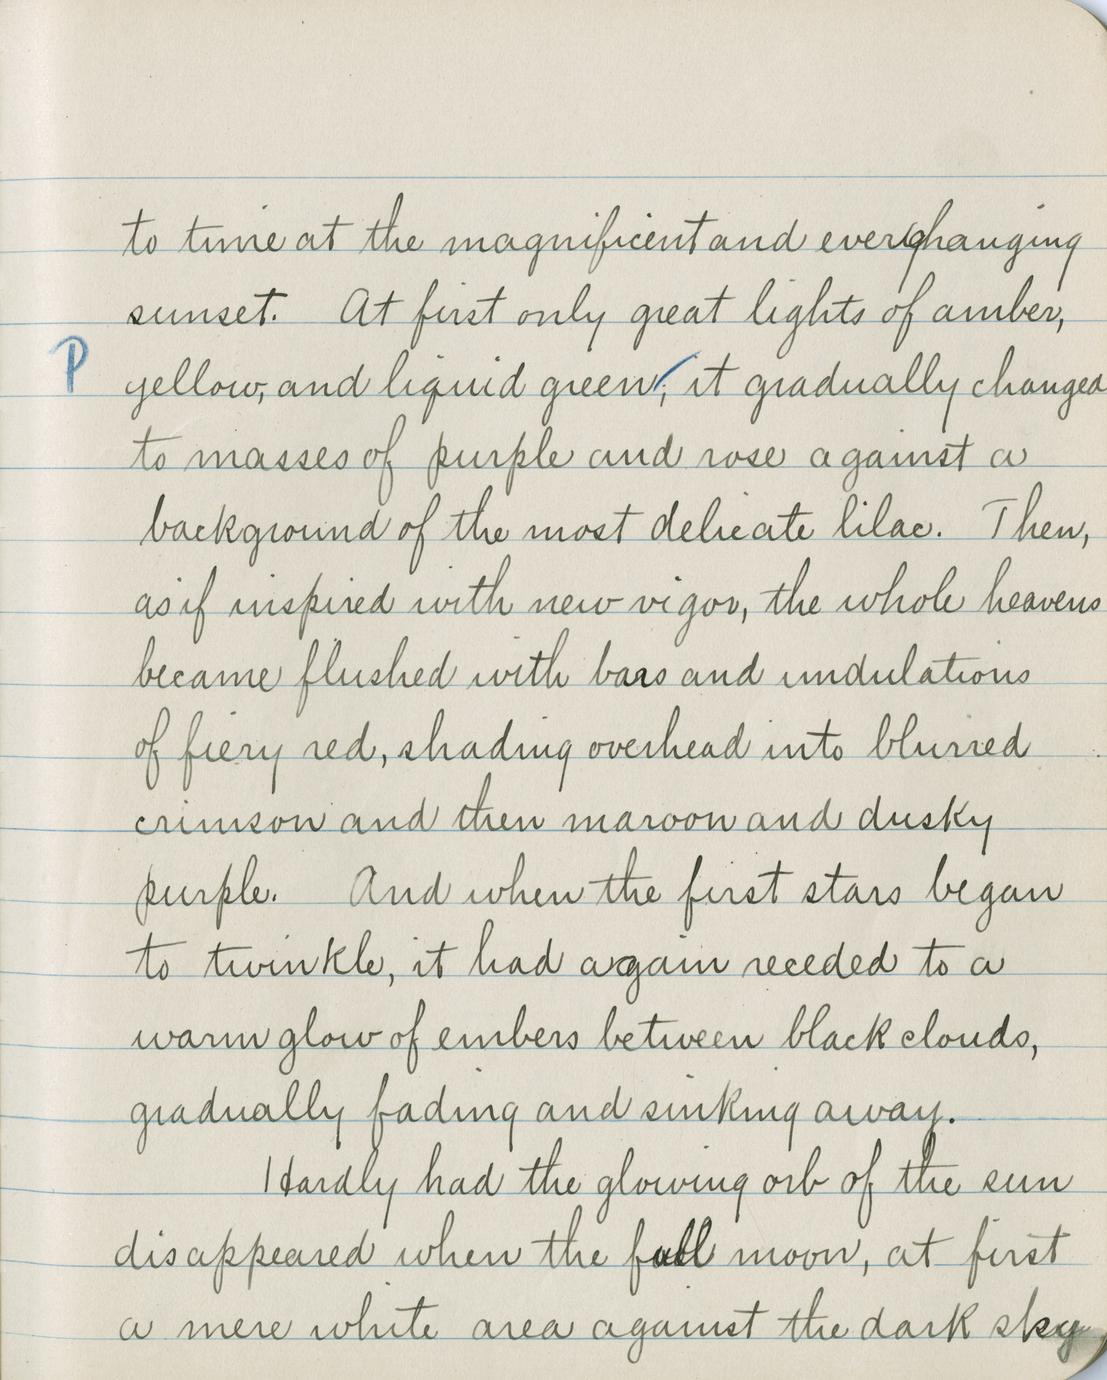 to time at the magnificent and everchanging
sunset. At first only great lights of amber,
P yellow, and liquid green; it gradually changed
to masses of purple and rose against a
background of the most delicate lilac. Then,
as if inspired with new vigor, the whole heavens
became flushed with bars and undulations
of fiery red, shading overhead into blurred
crimson and then maroon and dusky
purple. And when the first stars began
to twinkle, it had again receded to a
warm glow of embers between black clouds,
gradually fading and sinking away.
Hardly had the glowing orb of the sun
disappeared when the full moon, at first
a mere white area against the dark sky,